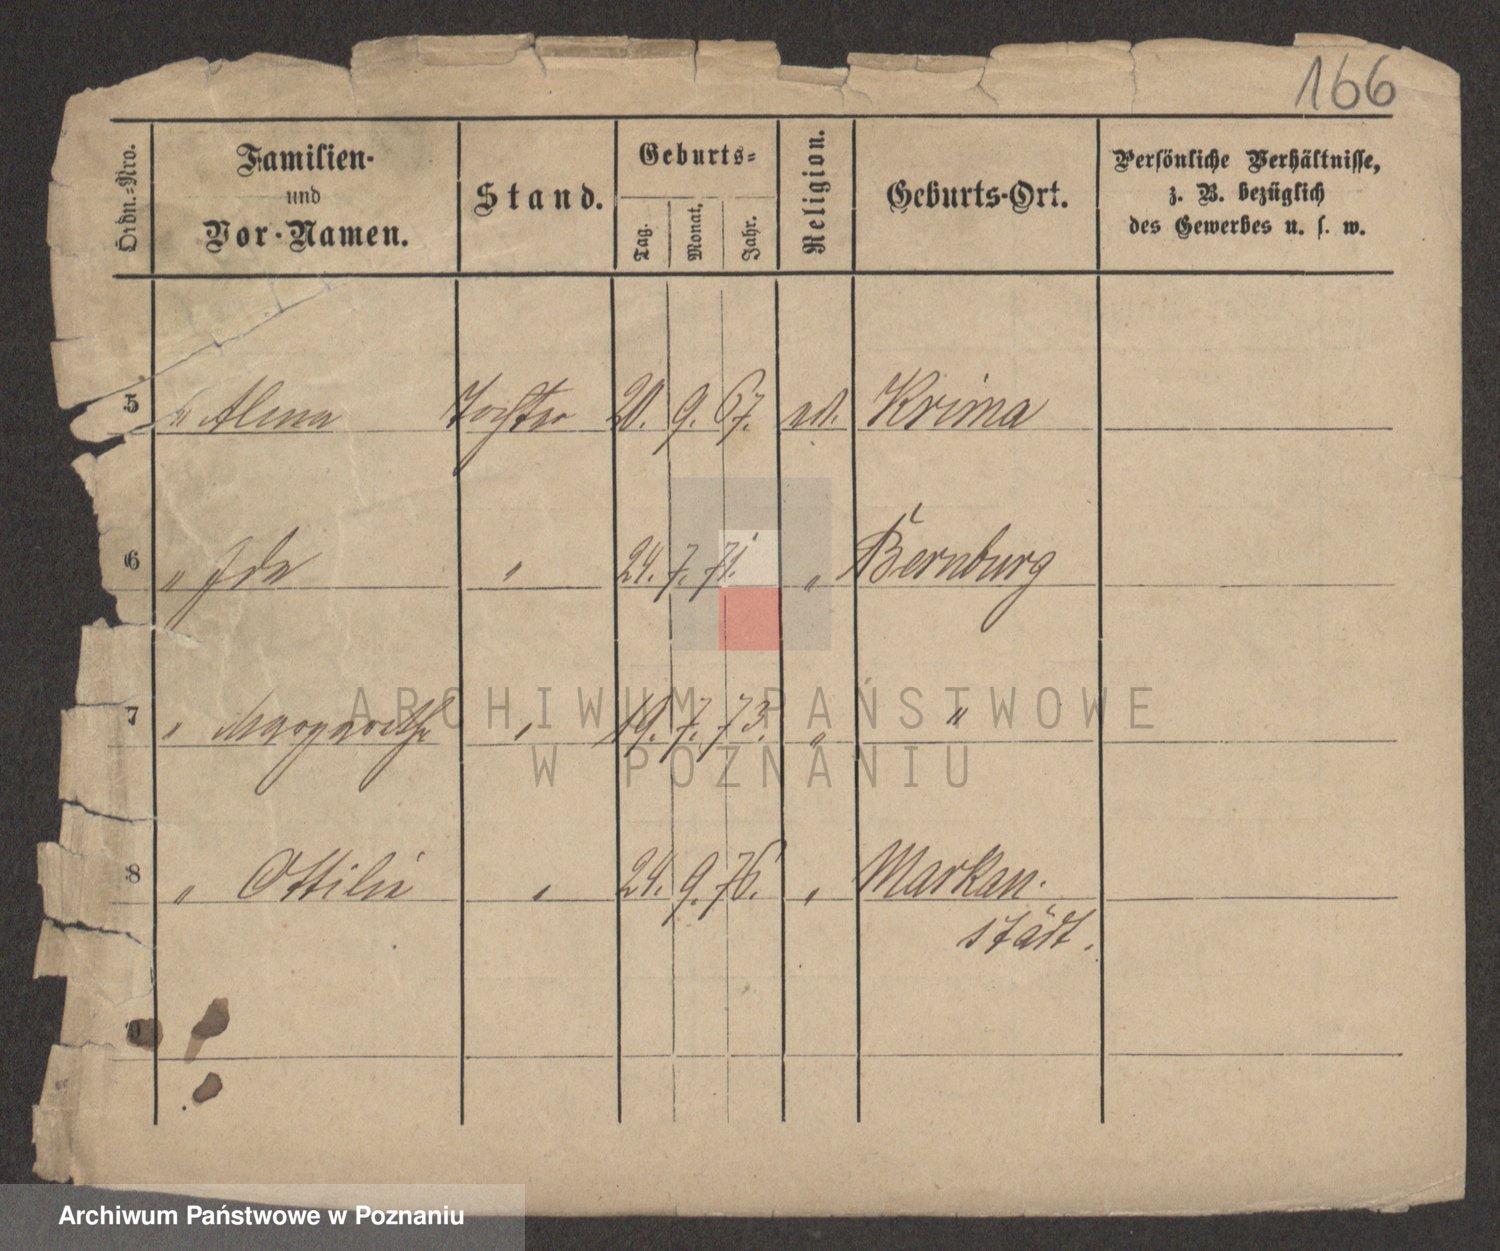 166
Ordn.-Nro.
Familien-
und
Vor-Namen.
Stand.
Geburts-
Tag.
Monat.
Jahr.
Religion.
Geburts-Ort.
Persönliche Verhältnisse,
z. B. bezüglich
des Gewerbes u. s. w.
5 " Alma Tochter 20. 9. 67. Krima
6 " Ida " 24. 7. 71. " Bernburg
7 " Margarethe " 19. 7. 73. " "
8 " Ottilie " 24. 9. 76. " Markan-
städt.
9
ARCHIWUM PAŃSTWOWE
W POZNANIU
Archiwum Państwowe w Poznaniu